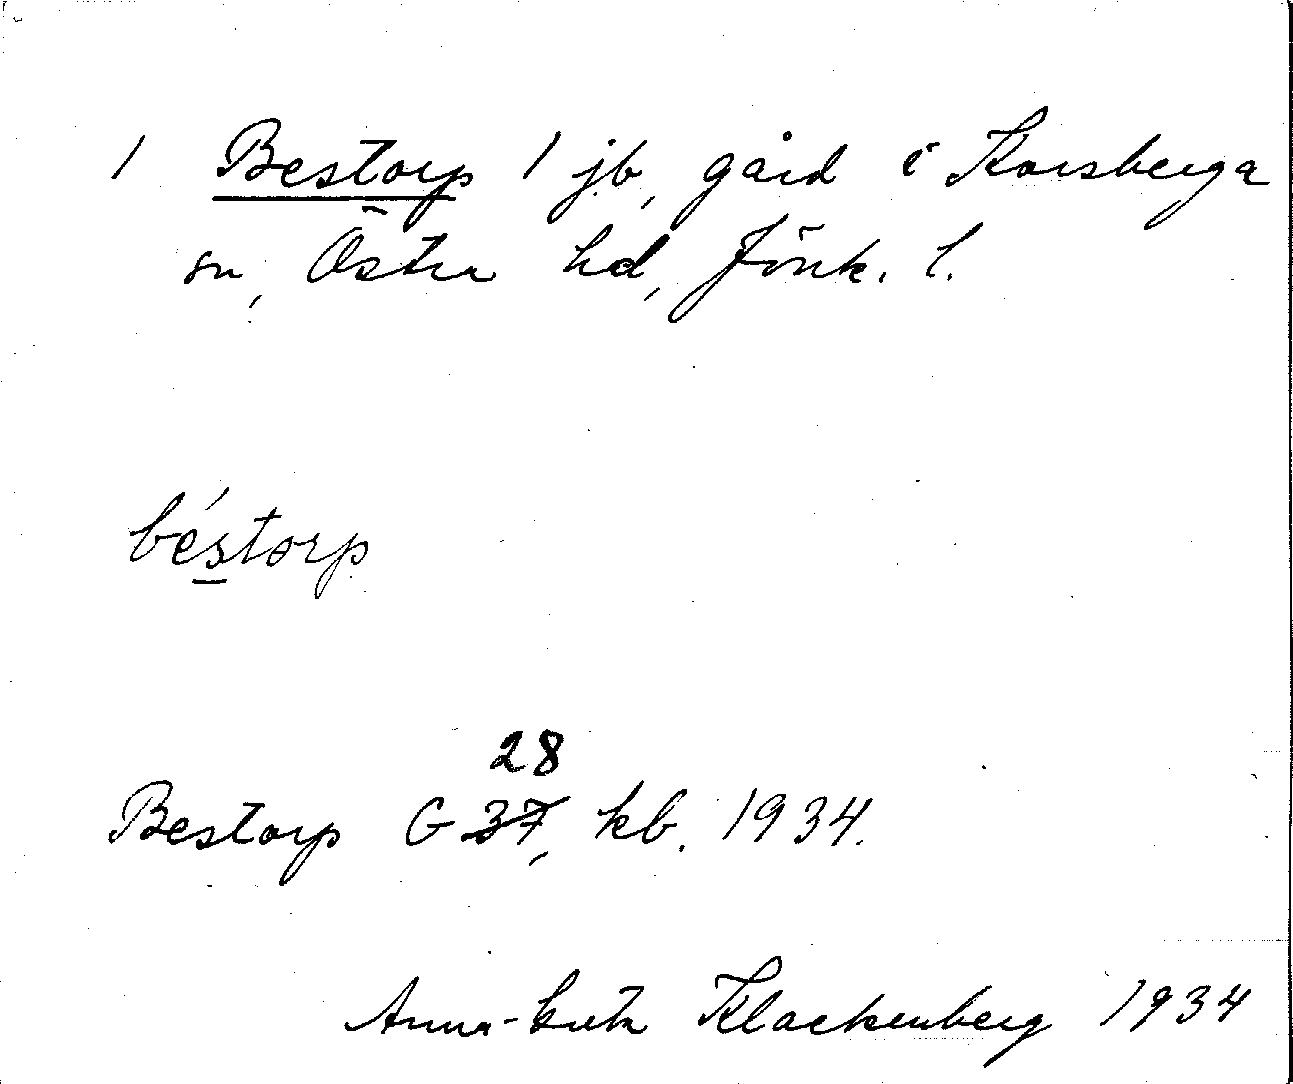 1 Bestorp 1 jb, gård i Korsberga
sn, Östra hd, Jönk. l.
béstorp
28
Bestorp G 37, kb. 1934.
Anna-Greta Klackenberg 1934